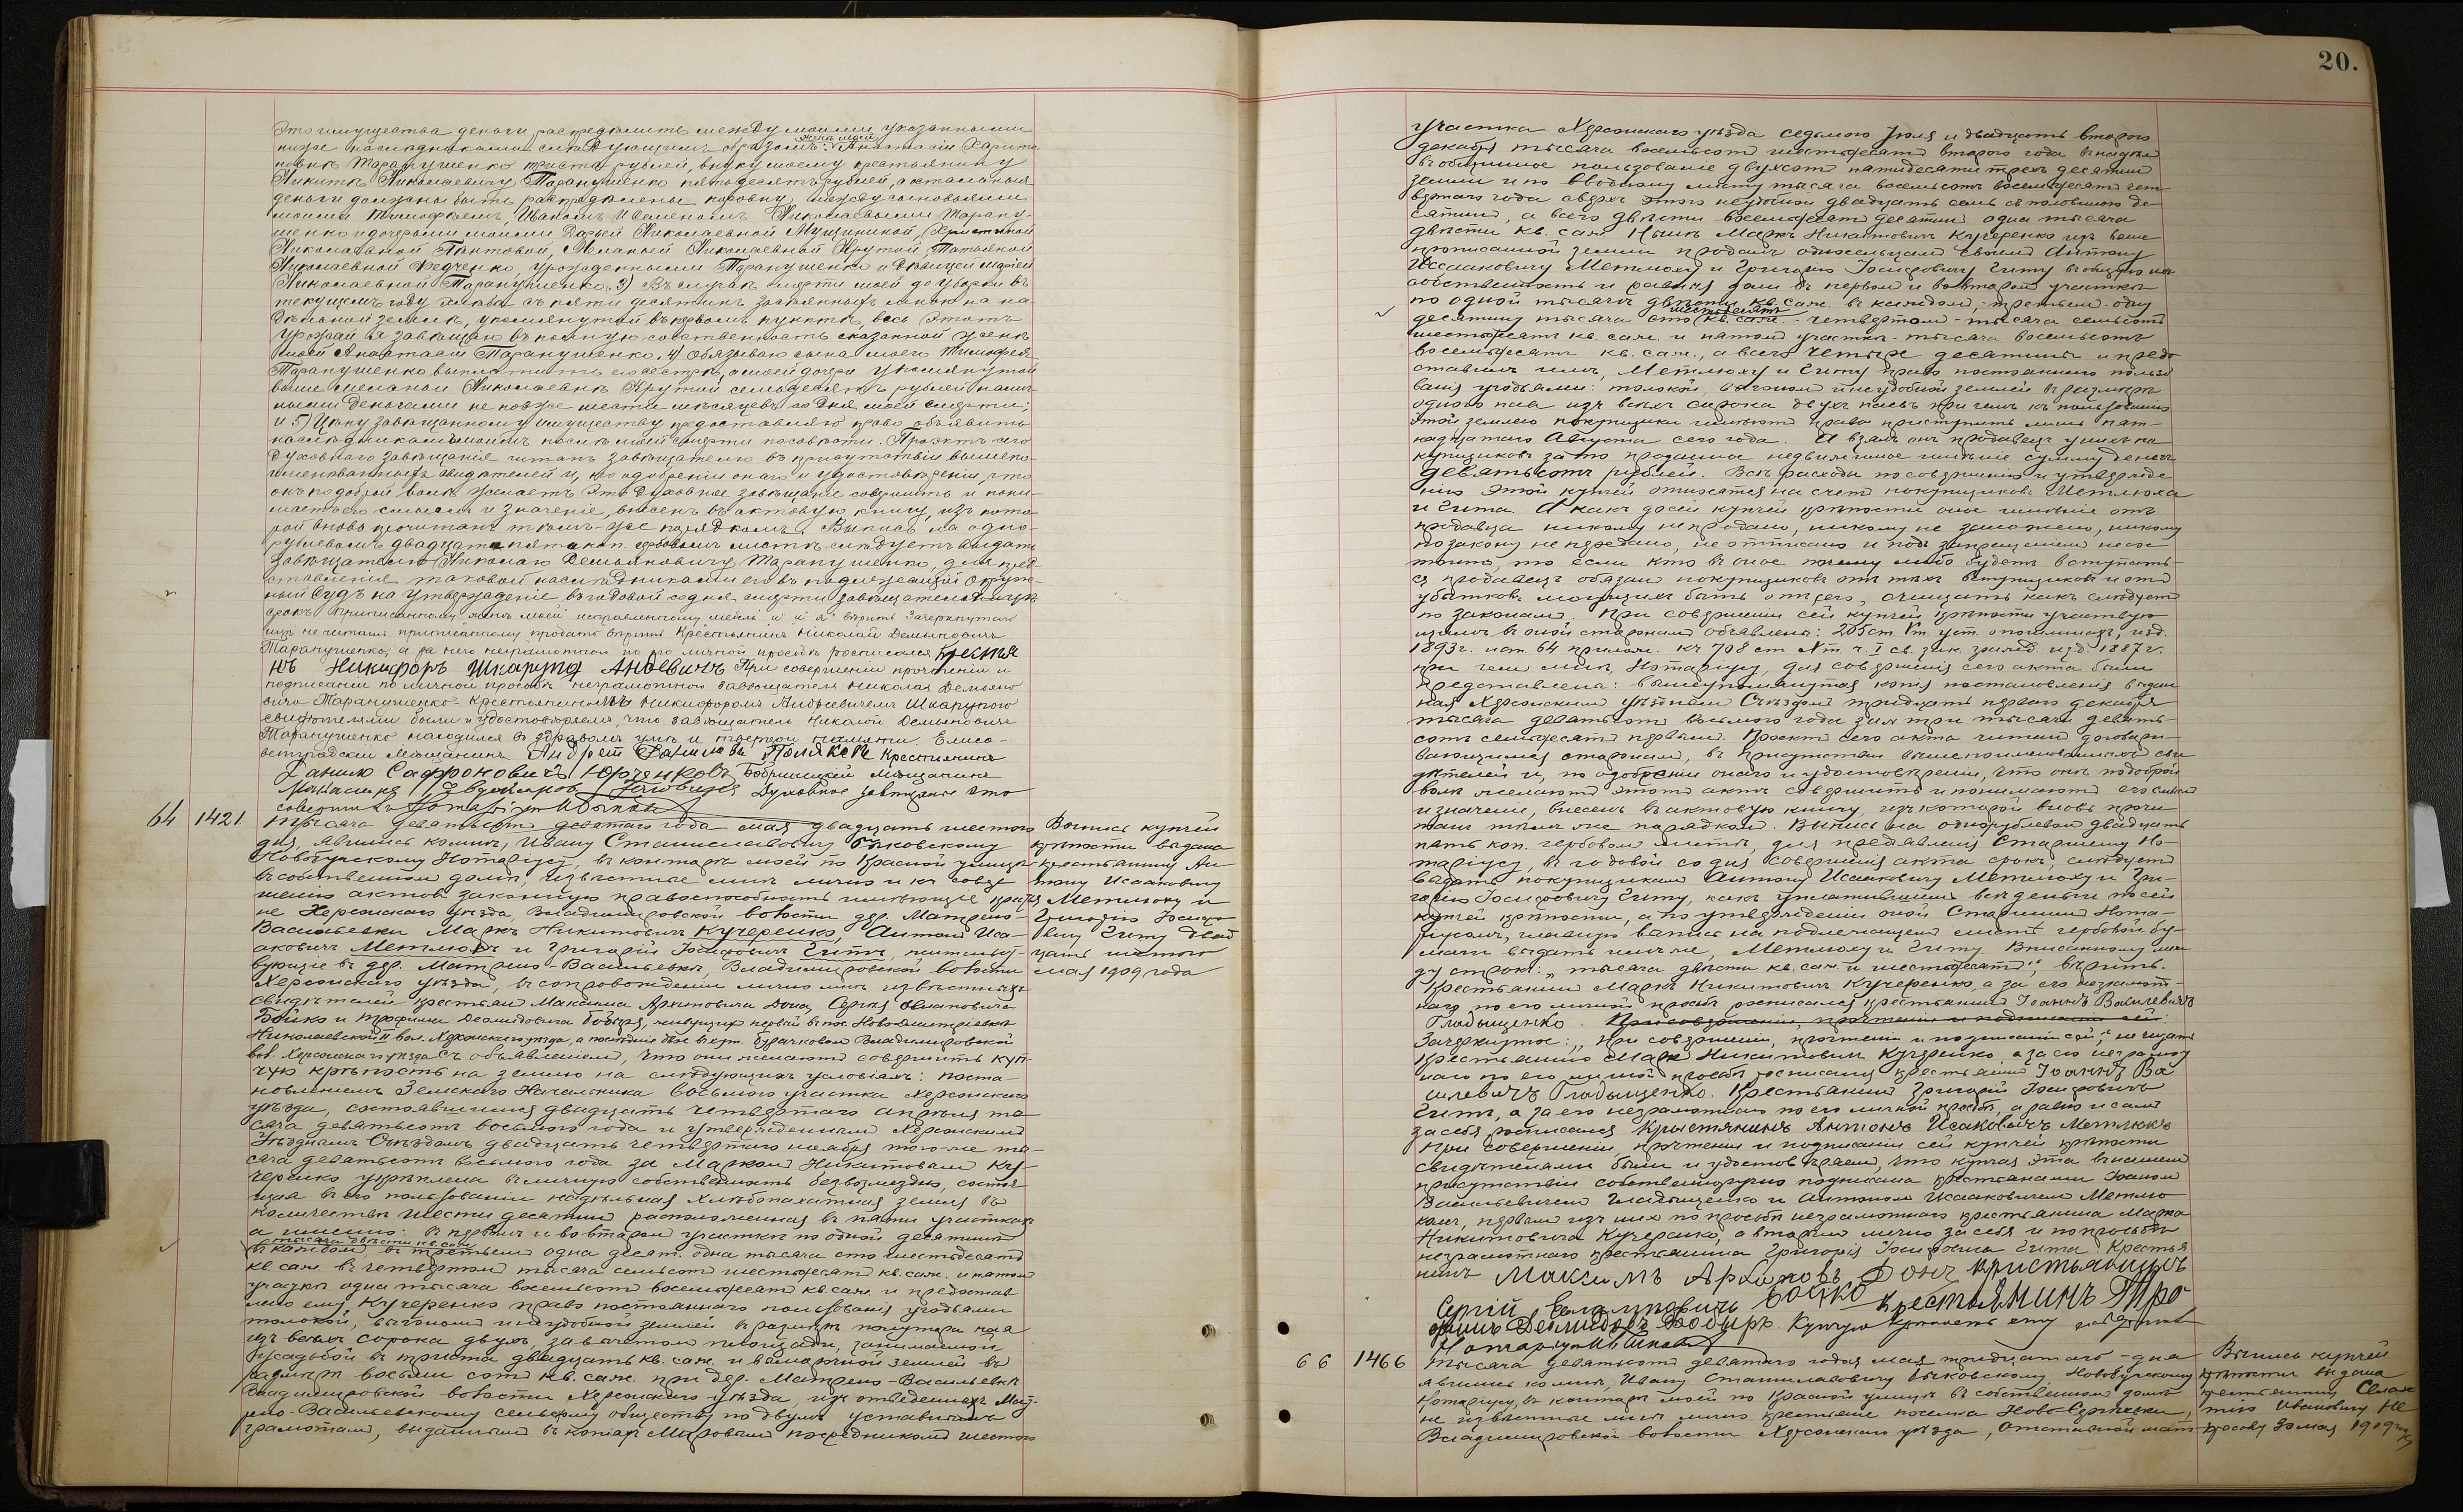 20.
Это имущества деньги распределить между моими указанными
жене моей
ниже наследниками следующимъ образомъ: Анастасіи Харито
новнѣ Таранушенко триста рублей, внуку моему крестьянину
Никитѣ Николаевичу Таранушенко пятьдесятъ рублей, а остальныя
деньги должны быть распредѣлены поровну между сыновьями
моими Тимофеемъ Иваномъ и Семеномъ Николаевыми Тарану-
шенко и дочерьми моими Дарьей Николаевной Мущининой, Христиной
Николаевной Пантовой, Меланьей Николаевной Крутой, Татьяной
Николаевной Федченко, урожденными Таранушенко и дѣвицей Маріей
Николаевной Таранушенко. 3) Въ случаѣ смерти моей до уборки въ
текущемъ году хлѣба съ пяти десятинъ засѣянныхъ мною на на
дѣльной землѣ, упомянутой въ первомъ пунктѣ, весь этотъ
урожай я завѣщаю въ полную собственность сказанной женѣ
моей Анастасіи Таранушенко. 4) Обязываю сына моего Тимофея
Таранушенко выплатить его сестрѣ, а моей дочери упомянутой
выше Меланьи Николаевнѣ Крутой семьдесятъ рублей налич-
ными деньгами не позже шести мѣсяцевъ со дня моей смерти;
и 5) Цѣну завѣщанному имуществу предоставляю право объявить
наслѣдникамъ моимъ послѣ моей смерти по совѣсти. Проэктъ сего
духовнаго завѣщанія читанъ завѣщателю въ присутствіи вышепо-
именованныхъ свидѣтелей и, по одобреніи онаго и удостовѣреніи, что
онъ по доброй волѣ желаетъ это духовное завѣщаніе совершить и пони-
маетъ его смыслъ и значеніе, внесенъ въ актовую книгу, изъ кото-
рой вновь прочитанъ тѣмъ-же порядкомъ. Выпись на одно-
рублевомъ двадцати пяти коп. гербовомъ листѣ слѣдуетъ выдать
завѣщателю Николаю Демьяновичу Таранушенко, для пред
ставленія таковой наслѣдниками его въ подлежащій Окруж-
ный Судъ на утвержденіе въ годовой со дня смерти завѣщателя
срокъ. Приписанному "женѣ моей" исправленному вѣрить Зачеркнутаго
не читать Крестьянинъ Николай Демьяновичъ
Таранушенко, а за него неграмотнаго по его личной просьбѣ росписался крестья
нъ Никифоръ Шкарупа Андѣевичъ При совершеніи прочтеніи и
подписаніи по личной просьбѣ неграмотнаго завѣщателя Николая Демьяно
вича Таранушенко крестьяниномъ Никифоромъ Андреевичемъ Шкарупою
свидѣтелями были и удостовѣряемъ, что завѣщатель Николай Демьяновичъ
Таранушенко находился въ здравомъ умѣ и твердой памяти. Елиса-
ветградскій мѣщанинъ Андрей Даниловъ Поляковъ Крестьянинъ
Данило Сафроновичъ Юрченковъ Бобринецкій мѣщанинъ
Духовное завѣщаніе это
совершилъ Нотаріусъ Быковскій
64 1421
Тысяча девятьсотъ девятаго года мая двадцать шестого
дня, явились ко мнѣ, Ивану Станиславовичу Быковскому
Новобугскому Нотаріусу, въ контору мою по Красной улицѣ
въ собственномъ домѣ, извѣстные мнѣ лично и къ совер
шенію актовъ законную правоспособность имѣющіе крестья
не Херсонскаго уѣзда, Владимировской волости дер. Матрено-
Васильевки Маркъ Никитовичъ Кучеренко, Антонъ Иса-
аковичъ Метлюкъ и Григорій Іосифовичъ Гитъ, жительст-
вующіе въ дер. Матрено-Васильевкѣ, Владимировской волости
Херсонскаго уѣзда, въ сопровожденіи лично мнѣ извѣстныхъ
свидѣтелей крестьянъ Максима Архиповича Дона, Сергѣя
Бойко и Трофима Деомидовича Бобыря, живущихъ первый въ пос. Ново-Дмитріевкѣ
Николаевской II вол. Херсонскаго уѣзда, а послѣдніе двое въ Владимировской
вол. Херсонскаго уѣзда съ объявленіемъ, что они желаютъ совершить куп-
чую крѣпость на землю на слѣдующихъ условіяхъ: поста-
новленіемъ Земскаго Начальника восьмого участка Херсонскаго
уѣзда, состоявшимся двадцать четвертаго апрѣля ты-
сяча девятьсотъ восьмого года и утвержденнымъ Херсонскимъ
Уѣзднымъ Съѣздомъ двадцать четвертаго ноября того-же ты-
сяча девятьсотъ восьмого года за Маркомъ Никитовымъ Ку-
черенко укрѣплена въ личную собственность безвозмездно, состоя
щая въ его пользованіи надѣльная хлѣбопахатная земля въ
количествѣ шести десятинъ расположенная въ пяти участкахъ
а именно: въ первомъ и во второмъ участкѣ по одной десятинѣ
тысяча двѣсти кв. саж.
въ каждомъ въ третьемъ одна десят. одна тысяча сто шестьдесятъ
кв. саж. въ четвертомъ тысяча семьсотъ шестьдесятъ кв. саж. и пятомъ
участкѣ одна тысяча восемьсотъ восемьдесятъ кв. саж. и предостав
лено ему Кучеренко право постояннаго пользованія угодьями
толокой, выгономъ и неудобной землей въ размѣрѣ полутора пая
изъ всѣхъ сорока двухъ, за вычетомъ площади, занимаемой
усадьбой въ триста двадцать кв. саж. и землей въ
размѣрѣ восьми сотъ кв. саж. при дер. Матрено-Васильевкѣ
Владимировской волости Херсонскаго уѣзда, изъ отведенныхъ Мат-
рено-Васильевскому сельскому обществу по двумъ уставнымъ
грамотамъ, выданнымъ въ копіяхъ Мировымъ посредникомъ шестого
Выпись купчей
крѣпости выдана
крестьянину Ан
тону Исааковичу
Метлюку и
Григорію Іосифо
вичу Гиту двад
цать шестого
мая 1909 года
участка Херсонскаго уѣзда седьмого Іюля и двадцать второго
декабря тысяча восемьсотъ шестьдесятъ второго года въ надѣлъ
въ общинное пользованіе двухсотъ пятидесяти трехъ десятинъ
земли и по вводному листу тысяча восемьсотъ восемьдесятъ чет
вертаго года сверхъ этого неудобной двадцать семь съ половиною де
сятинъ, а всего двѣсти восемьдесятъ десятинъ одна тысяча
двѣсти кв. саж. Нынѣ Маркъ Никитовичъ Кучеренко изъ выше
прописанной земли продалъ односельцамъ своимъ Антону
Исааковичу Метлюку и Григорію Іосифовичу Гиту въ общую ихъ
собственность и равныя доли въ первомъ и во второмъ участкѣ
по одной тысячѣ двѣсти кв. саж. въ каждомъ, третьемъ одну
шестьдесятъ
десятину тысяча сто кв. саж. - четвертомъ - тысяча семьсотъ
шестьдесятъ кв. саж. и пятомъ участкѣ - тысяча восемьсотъ
восемьдесятъ кв. саж., а всего четыре десятины и предо
ставилъ имъ, Метлюку и Гиту право постояннаго пользо
ванія угодьями: толокой, выгономъ и неудобной землей въ размѣрѣ
одного пая изъ всѣхъ сорока двухъ паевъ при чемъ къ пользованію
этой землею покупщики имѣютъ право приступить лишь пят-
надцатаго Августа сего года. А взялъ онъ продавецъ у нихъ по
купщиковъ за то проданное недвижимое имѣніе сумму денегъ
девятьсотъ рублей. Всѣ расходы по совершенію и утвержде
нію этой купчей относятся на счетъ покупщиковъ Метлюка
и Гита. А какъ до сей купчей крѣпости оное имѣніе отъ
продавца никому не продано, никому не заложено, никому
по закону не передано, не отписано и подъ запрещеніемъ не со
стоитъ, то если кто въ оное почему либо будетъ вступать-
ся продавецъ обязанъ покупщиковъ отъ тѣхъ вступщиковъ и отъ
убытковъ могущихъ быть отъ сего, очищать какъ слѣдуетъ
по законамъ. При совершеніи сей купчей крѣпости участвую
щимъ въ оной сторонамъ объявлены: 205 ст. Vт. уст. о пошлинахъ, изд.
1893г. пот. 64 прилож. къ 708 ст. Xт. ч. I св. зак. гражд. изд. 1887г.
при чемъ мнѣ, Нотаріусу, для совершенія сего акта были
представлена: вышеупомянутая копія постановленія выдан
ная Херсонскимъ Уѣзднымъ Съѣздомъ тридцать перваго декабря
тысяча девятьсотъ восьмого года за № три тысячи девять-
сотъ семьдесятъ первымъ. Проектъ сего акта читанъ договари
вающимся сторонамъ, въ присутствіи вышепоименованныхъ сви
дѣтелей и, по одобреніи онаго и удостовѣреніи, что они по доброй
волѣ желаютъ этотъ актъ совершить и понимаютъ его смыслъ
и значеніе, внесенъ въ актовую книгу, изъ которой вновь прочи
танъ тѣмъ же порядкомъ. Выпись на однорублевомъ двадцать
пять коп. гербовомъ листѣ, для предъявленія Старшему Но-
таріусу, въ годовой со дня совершенія акта срокъ, слѣдуетъ
выдать покупщикамъ Антону Исааковичу Метлюку и Гри-
горію Іосифовичу Гиту, какъ уплатившимъ всѣ деньги по сей
купчей крѣпости, а по утвержденіи оной Старшимъ Нота-
ріусомъ, главную выпись на подлежащемъ листѣ гербовой бу-
маги выдать имъ же, Метлюку и Гиту. Вписанному меж
ду строкъ: „тысяча двѣсти кв. саж. и шестьдесятъ", вѣрить.
Крестьянинъ Маркъ Никитовичъ Кучеренко, а за его неграмот-
наго по его личной просьбѣ росписался крестьянинъ Іоаннъ Васильевичъ
Гладыщенко. При совершеніи, прочтеніи и подписаніи сей:
Зачеркнутое: „При совершеніи, прочтеніи и подписаніи сей", не читать
Крестьянинъ Маркъ Никитовичъ Кучеренко, а за его неграмот
наго по его личной просьбѣ росписался крестьянинъ Іоаннъ Ва
силевичъ Гладыщенко. Крестьянинъ Григорій Іосифовичъ
Гитъ, а за его неграмотнаго по его личной просьбѣ, а равно и самъ
за себя росписался Крыстянинъ Антонъ Исаковичъ Метлюкъ
При совершеніи, прочтеніи и подписаніи сей купчей крѣпости
свидѣтелями были и удостовѣряемъ, что купчая эта въ нашемъ
присутствіи собственноручно подписана крестьянами Іоанномъ
Васильевичемъ Гладыщенко и Антономъ Исааковичемъ Метлю
комъ, первымъ изъ нихъ по просьбѣ неграмотнаго крестьянина Марка
Никитовича Кучеренко, а вторымъ лично за себя и по просьбѣ
неграмотнаго крестьянина Григорія Іосифовича Гита. Крестья
нинъ Максимъ Архиповъ Донъ кристьянинъ
Сергій Бойко крестьянинъ Тро
фимъ Демидовъ Бобырь. Купчую крѣпость эту совершилъ
Нотаріусъ Быковскій
66 1466
Тысяча девятьсотъ девятаго года мая тридцатаго дня
явились ко мнѣ, Ивану Станиславовичу Быковскому, Новобугскому
Нотаріусу, въ контору мою по Красной улицѣ въ собственномъ домѣ
не извѣстные мнѣ лично крестьяне поселка Ново-Сергѣевки,
Владимировской волости Херсонскаго уѣзда, отставной мат
Выпись купчей
крѣпости выдана
крестьянину
Ивановичу Не
красову 30 мая 1909 года